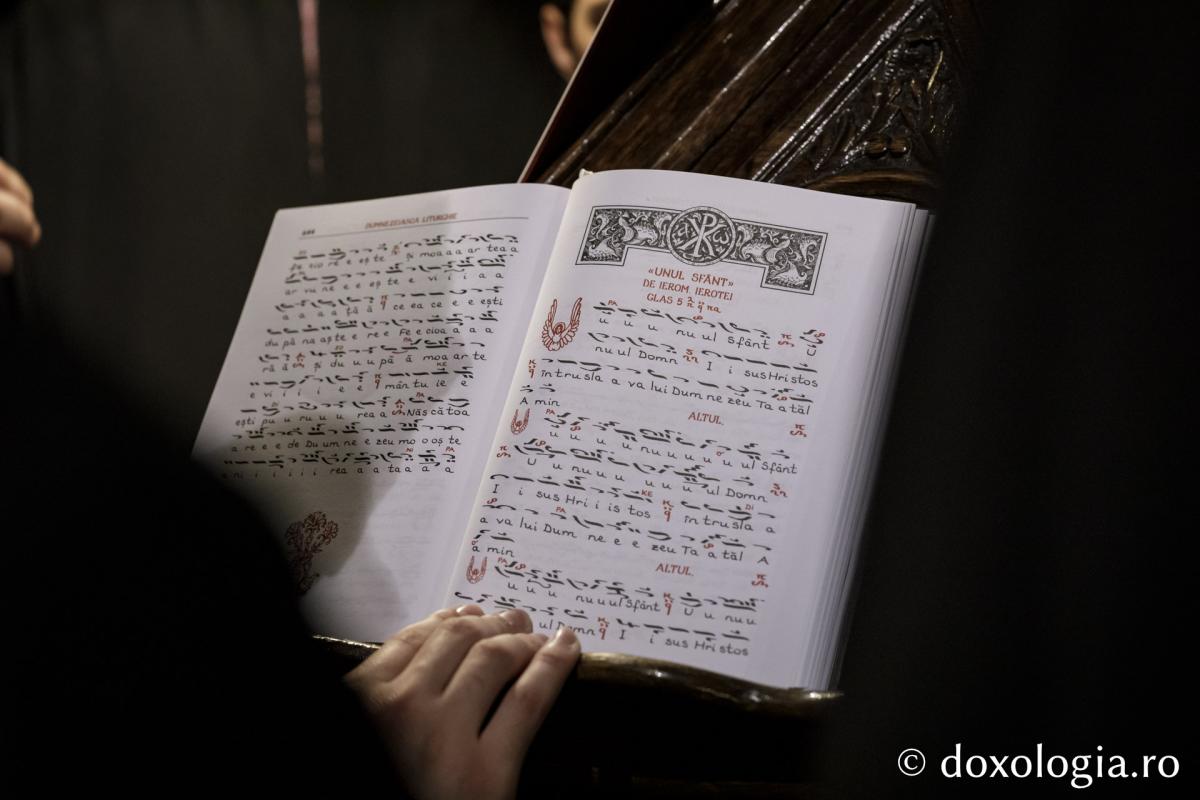 DUMNEZEIASCA LITURGHIE
fe cio re e eș te și moa a a ar tea a
ar vu ne e e eș te e vi i i a a
a a a a fă ă ce ea ce e e ești
du pă naș te e re e Fe e cioa a a a
ră ă și du u u pă ă moa ar te
e vi i i i e e mân tu ie e
ești pu u ru u u rea a Năs că toa
a re e e de Du um ne e zeu mo o oș te
e ni i i i i i rea a a ta a a a
«UNUL SFÂNT»
DE IEROM. IEROTEI
GLAS 5 na
PA
u u u nu ul Sfânt U
nu ul Domn I i sus Hristos
întru sla a va lui Dum ne zeu Ta a tăl
A min
ALTUL.
PA
u u u u nu u u u u u ul Sfânt
U u nu u u u u u ul Domn
KE DI
I i sus Hri i is tos în tru sla a
PA
a va lui Dum ne e e zeu Ta a tăl A
a min
ALTUL.
PA
u u u nu u ul Sfânt U u nu u
ul Domn I i sus Hri stos
© doxologia.ro